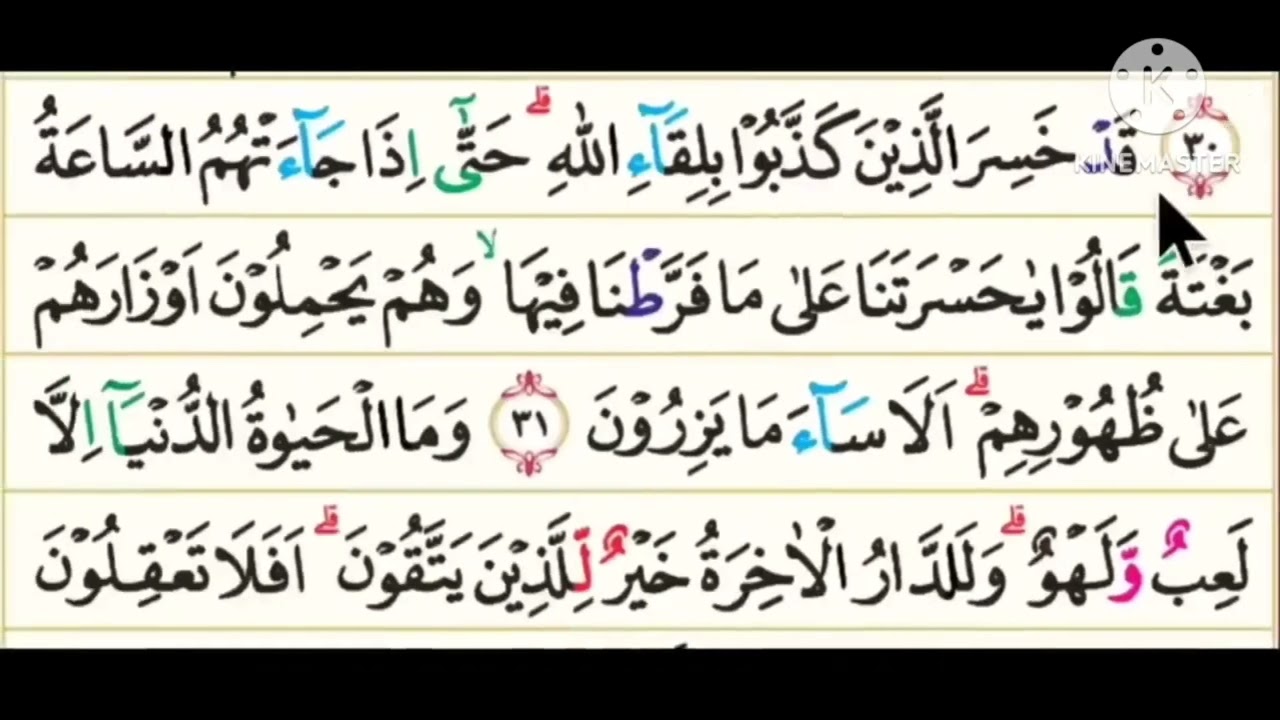 ٣٠ قَدْ خَسِرَ الَّذِيْنَ كَذَّبُوْا بِلِقَاۤءِ اللّٰهِ ۗ حَتّٰٓى اِذَا جَاۤءَتْهُمُ السَّاعَةُ
بَغْتَةً قَالُوْا يٰحَسْرَتَنَا عَلٰى مَا فَرَّطْنَا فِيْهَا ۙ وَهُمْ يَحْمِلُوْنَ اَوْزَارَهُمْ
عَلٰى ظُهُوْرِهِمْ ۗ اَلَا سَاۤءَ مَا يَزِرُوْنَ ٣١ وَمَا الْحَيٰوةُ الدُّنْيَآ اِلَّا
لَعِبٌ وَّلَهْوٌ ۗ وَلَلدَّارُ الْاٰخِرَةُ خَيْرٌ لِّلَّذِيْنَ يَتَّقُوْنَ ۗ اَفَلَا تَعْقِلُوْنَ
KINEMASTER